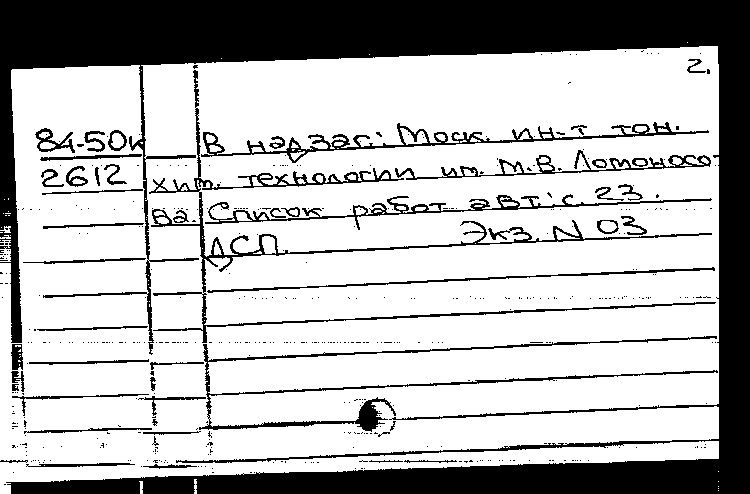 2.
84-50к В надзаг.: Моск. ин-т тон.
2612 хим. технологии им. М.В. Ломоносо-
ва. Список работ авт.: с. 23.
ДСП. Экз. N 03